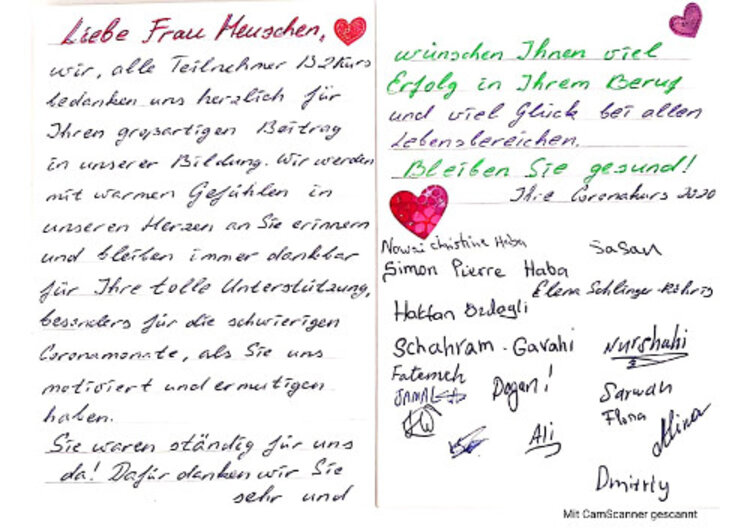 Liebe Frau Meuschen,
wir, alle Teilnehmer B2Kurs
bedanken uns herzlich für
Ihren großartigen Beitrag
in unserer Bildung. Wir werden
mit warmen Gefühlen in
unseren Herzen an Sie erinnern
und bleiben immer dankbar
für Ihre tolle Unterstützung,
besonders für die schwierigen
Coronamonate, als Sie uns
motiviert und ermutigen
haben.
Sie waren ständig für uns
da! Dafür danken wir Sie
sehr und
wünschen Ihnen viel
Erfolg in Ihrem Beruf
und viel Glück bei allen
Lebensbereichen.
Bleiben Sie gesund!
Ihre Coronakurs 2020
christine Haba
Sasan
Simon Pierre Haba
Elena Schlinger-Röhrig
Hakkan Ozdagli
Schahram-Gavahi
Nurshahi
Fatemeh
Dogan!
JAMAL
Sarwan
Flona
Mina
Ali
Dmitriy
Mit CamScanner gescannt